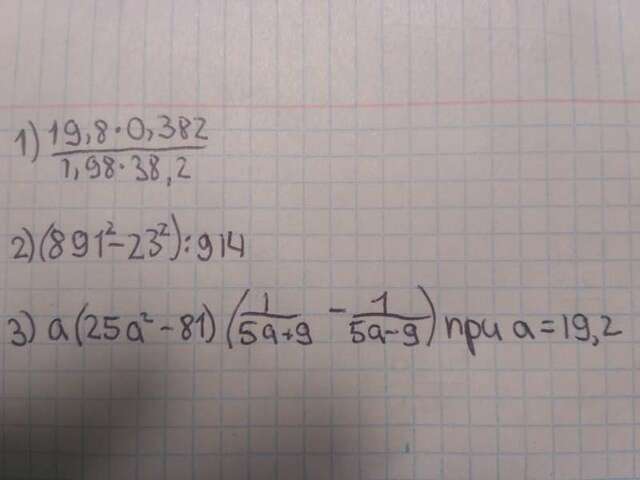 1) 19,8·0,382 / 1,98·38,2
2) (891²-23²):914
3) a(25a²-81)(1/5a+9 - 1/5a-9) при a=19,2